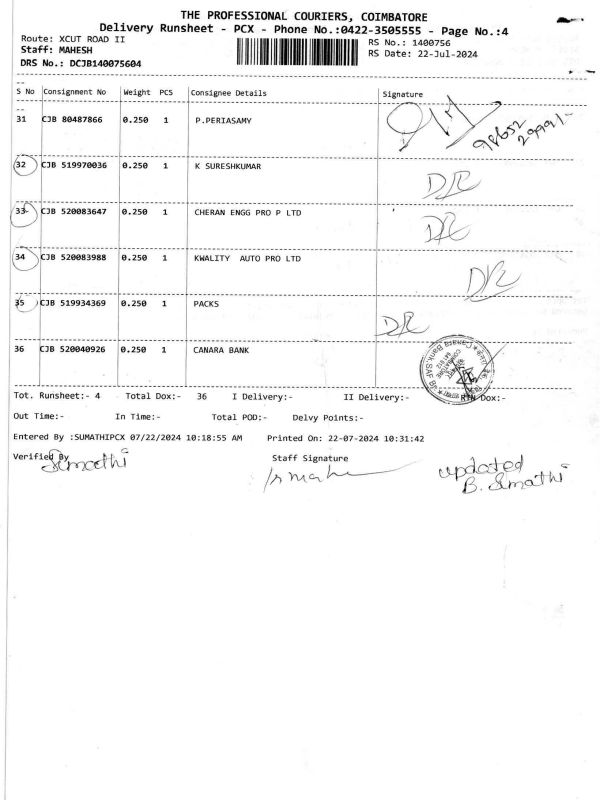 THE PROFESSIONAL COURIERS, COIMBATORE
Delivery Runsheet - PCX - Phone No.:0422-3505555 - Page No.:4
Route: XCUT ROAD II RS No.: 1400756
Staff: MAHESH RS Date: 22-Jul-2024
DRS No.: DCJB140075604
S No Consignment No Weight PCS Consignee Details Signature
31 CJB 80487866 0.250 1 P.PERIASAMY
32 CJB 519970036 0.250 1 K SURESHKUMAR DR
33 CJB 520083647 0.250 1 CHERAN ENGG PRO P LTD DR
34 CJB 520083988 0.250 1 KWALITY AUTO PRO LTD DR
35 CJB 519934369 0.250 1 PACKS DR
36 CJB 520040926 0.250 1 CANARA BANK
Tot. Runsheet:- 4 Total Dox:- 36 I Delivery:- II Delivery:- RTN Dox:-
Out Time:- In Time:- Total POD:- Delvy Points:-
Entered By :SUMATHIPCX 07/22/2024 10:18:55 AM Printed On: 22-07-2024 10:31:42
Verified By Staff Signature
Sumathi updated
B. Sumathi